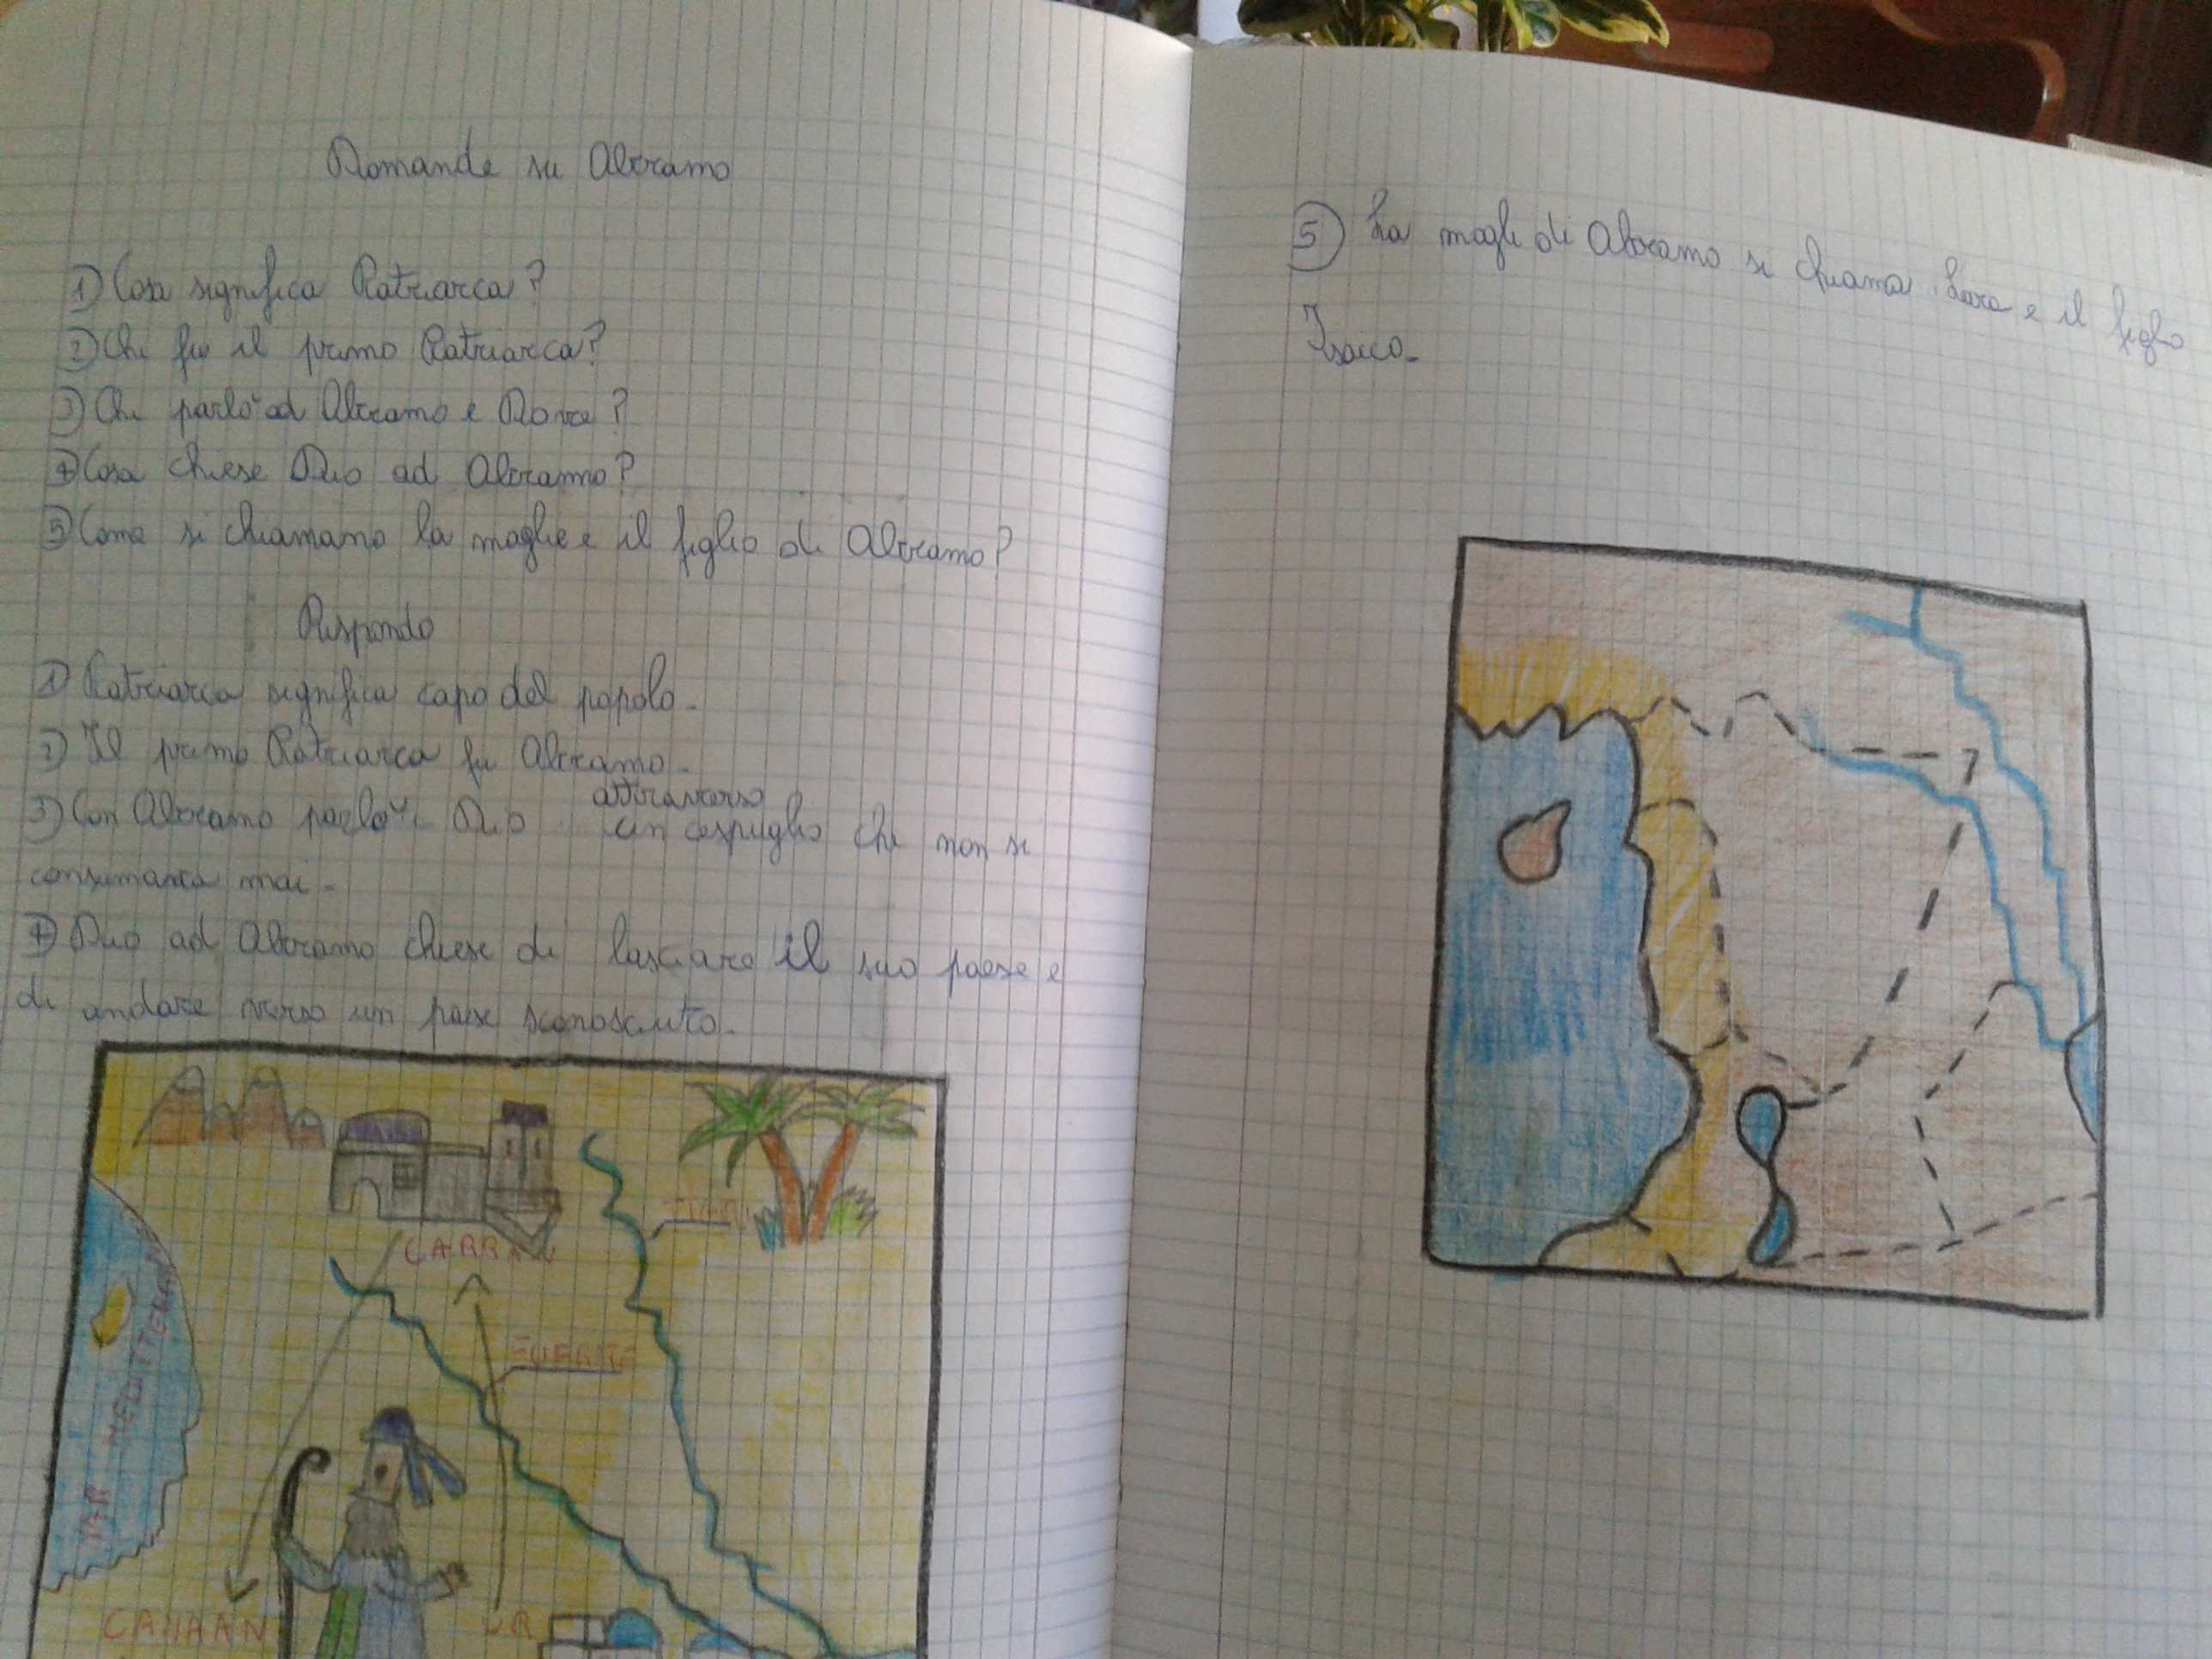 Domande su Abramo
1) Cosa significa Patriarca?
2) Chi fu il primo Patriarca?
3) Chi parlò ad Abramo e Dove?
4) Cosa chiese Dio ad Abramo?
5) Come si chiamano la moglie e il figlio di Abramo?
Rispondo
1) Patriarca significa capo del popolo.
2) Il primo Patriarca fu Abramo.
attraverso
3) Con Abramo parlò Dio un cespuglio che non si
consumava mai.
4) Dio ad Abramo chiese di lasciare il suo paese e
di andare verso un paese sconosciuto.
CARRAN
EUFRATE
MAR MEDITTERANEO
CANAAN
UR
5) La mogle di Abramo si chiama Sara e il figlio
Isacco.